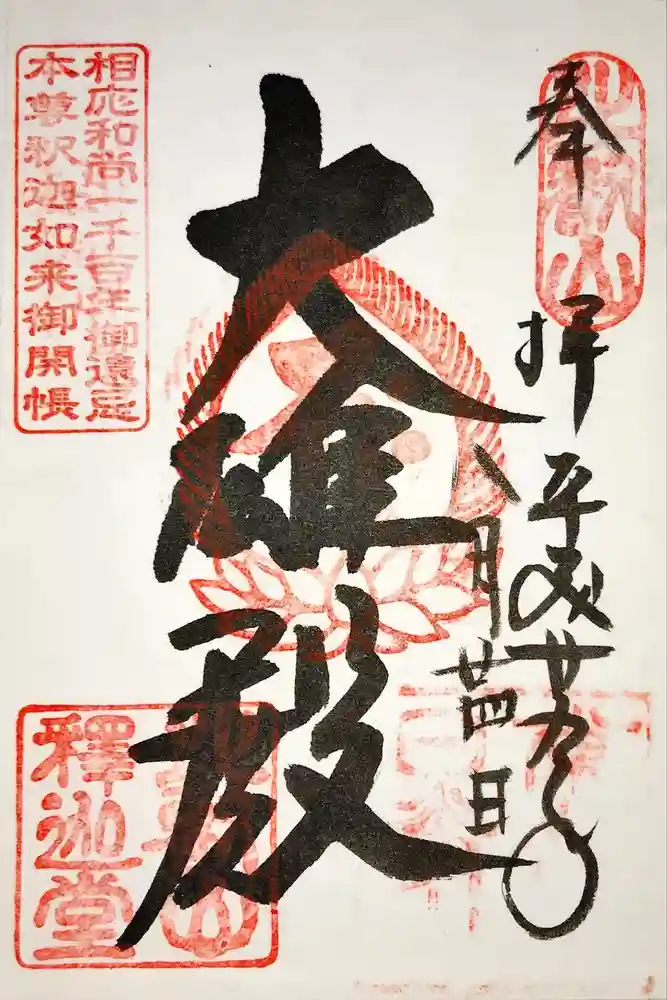 比叡山
奉拝
平成廿九年
八月廿四日
大雄殿
相応和尚一千百年御遠忌
本尊釈迦如来御開帳
叡山
釋迦堂